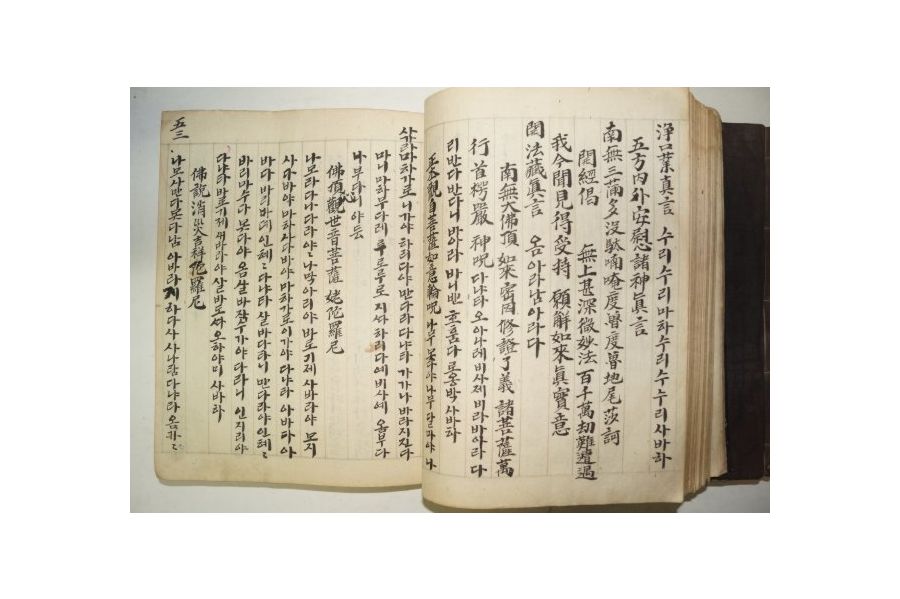 淨口業真言 수리수리마하수리수수리사바하
五方內外安慰諸神眞言
南無三滿多 沒駄喃唵度魯度魯地尾莎訶
開經偈 無上甚深微妙法百千萬劫難遭遇
我今聞見得受持 願解如來眞實意
開法藏眞言 옴아라남아라다
南無大佛頂 如來密因修證了義 諸菩薩萬
行首楞嚴 神呪 다냐타 오아나레비사제비라바아라다
리반다반다니 바아라 바니반 호훔다 로옹박 사바하
正本觀自菩薩如意輪呪 나무못다야나무달마야나
무승가야나무아리야바로기제사라야모지사다야마하사다야
사가라마하가로니가야 하리다야만다라다냐타 가가나바라지진다
마니마하무다레 루로루로지따하리다예비사예 옴부다
나부다니야등
佛頂心觀世音菩薩 姥陀羅尼
나모라다나다라야나막아리야 바로기제 사바라야 모지
사다바야 마하사다바야마하가로이가야 다냐타 아바다아
바다 바리바제 인혜혜 다냐타 살바다라니 만다라야 인혜혜
바리마수다 못다야 옴 살바작수가야 다라니 인지리야
다냐타 바로기제새바라야살바도따오하야미 사바하
佛說消災吉祥陀羅尼
나모사만다못다남 아바라지하다사사나남다냐타 옴카카
五三